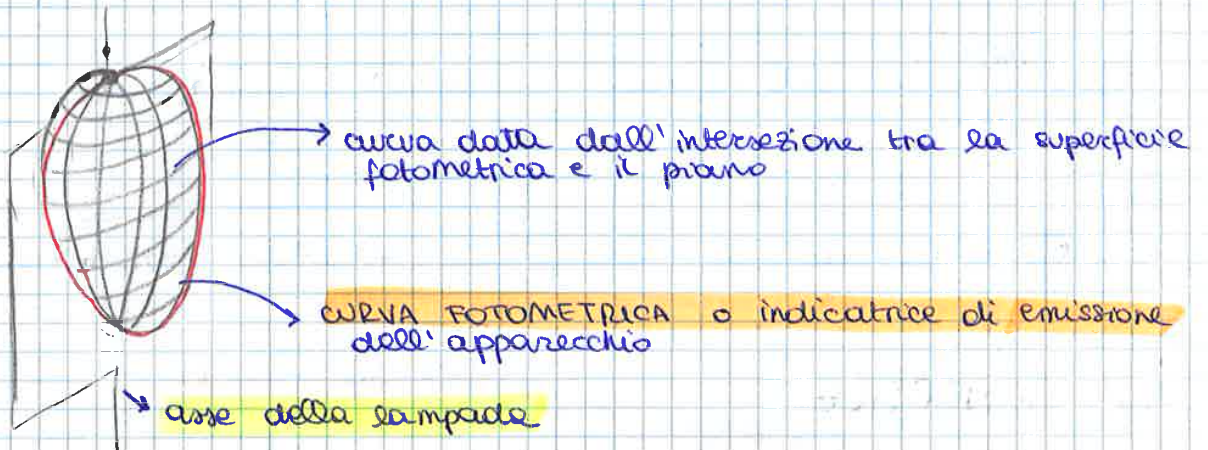 curva data dall'intersezione tra la superficie
fotometrica e il piano
CURVA FOTOMETRICA o indicatrice di emissione
dell'apparecchio
asse della lampada